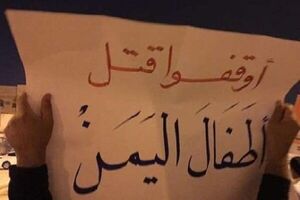 أوقفوا قتل
أطفال اليَمَنْ